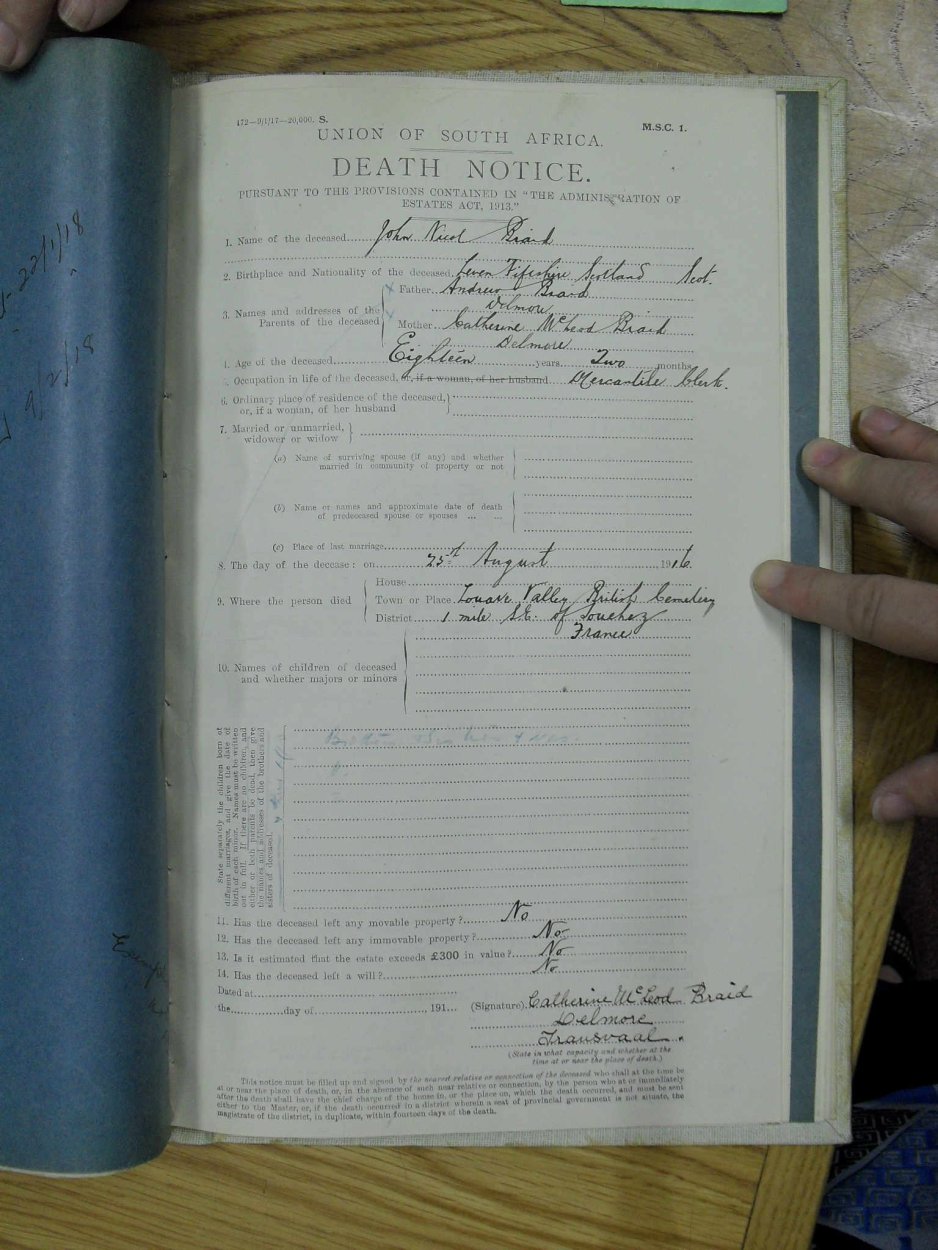 22/1/18
9/2/18
472—9/1/17—20,000. S.
M.S.C. 1.
UNION OF SOUTH AFRICA.
DEATH NOTICE.
PURSUANT TO THE PROVISIONS CONTAINED IN "THE ADMINISTRATION OF
ESTATES ACT, 1913."
1. Name of the deceased John Nicol Braid
2. Birthplace and Nationality of the deceased Leven Fifeshire Scotland Scot.
3. Names and addresses of the Parents of the deceased
Father Andrew Braid
Delmore
Mother Catherine McLeod Braid
Delmore
4. Age of the deceased Eighteen years Two months
5. Occupation in life of the deceased, or, if a woman, of her husband Mercantile Clerk.
6. Ordinary place of residence of the deceased,
or, if a woman, of her husband
7. Married or unmarried,
widower or widow
(a) Name of surviving spouse (if any) and whether
married in community of property or not
(b) Name or names and approximate date of death
of predeceased spouse or spouses ... ...
(c) Place of last marriage
8. The day of the decease: on 25th August 1916
9. Where the person died
House
Town or Place Zouave Valley British Cemetery
District 1 mile S.E. of Souchez
France
10. Names of children of deceased
and whether majors or minors
State separately the children born of
different marriages, and give the date of
birth of each minor. Names must be written
out in full. If there are no children, and
either or both parents be dead, then give
the names and addresses of the brothers and
sisters of deceased.
11. Has the deceased left any movable property? No
12. Has the deceased left any immovable property? No
13. Is it estimated that the estate exceeds £300 in value? No
14. Has the deceased left a will? No
Dated at
the day of , 191 .
(Signature) Catherine McLeod Braid
Delmore
Transvaal.
(State in what capacity and whether at the
time at or near the place of death.)
This notice must be filled up and signed by the nearest relative or connection of the deceased who shall at the time be
at or near the place of death, or, in the absence of such near relative or connection, by the person who at or immediately
after the death shall have the chief charge of the house in, or the place on, which the death occurred, and must be sent
either to the Master, or, if the death occurred in a district wherein a seat of provincial government is not situate, the
magistrate of the district, in duplicate, within fourteen days of the death.